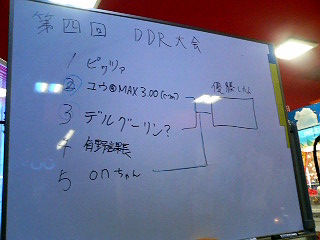 第四回 DDR大会
1 ピヴツァ
② ユウ@MAX3.00
優勝
3 デルグーリン?
4 有野課長
5 onちゃん